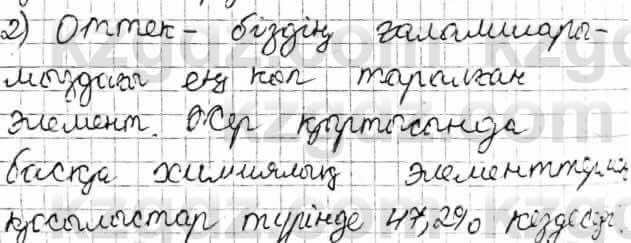 2) Оттек - біздің ғаламшары-
мыздағы ең көп таралған
элемент. Жер қыртысында
басқа химиялық элементтермен
қосылыстар түрінде 47,2% кездеседі.